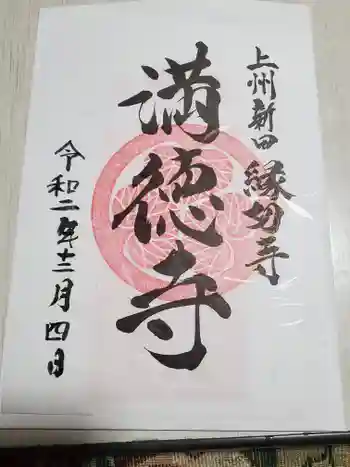 上州新田 縁切寺
満徳寺
令和二年十二月四日